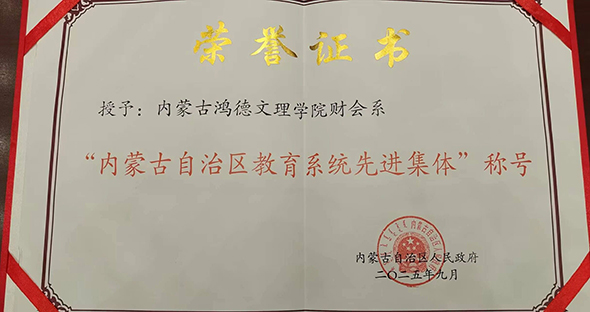 荣誉证书
授予：内蒙古鸿德文理学院财会系
“内蒙古自治区教育系统先进集体”称号
内蒙古自治区人民政府
二〇二五年九月